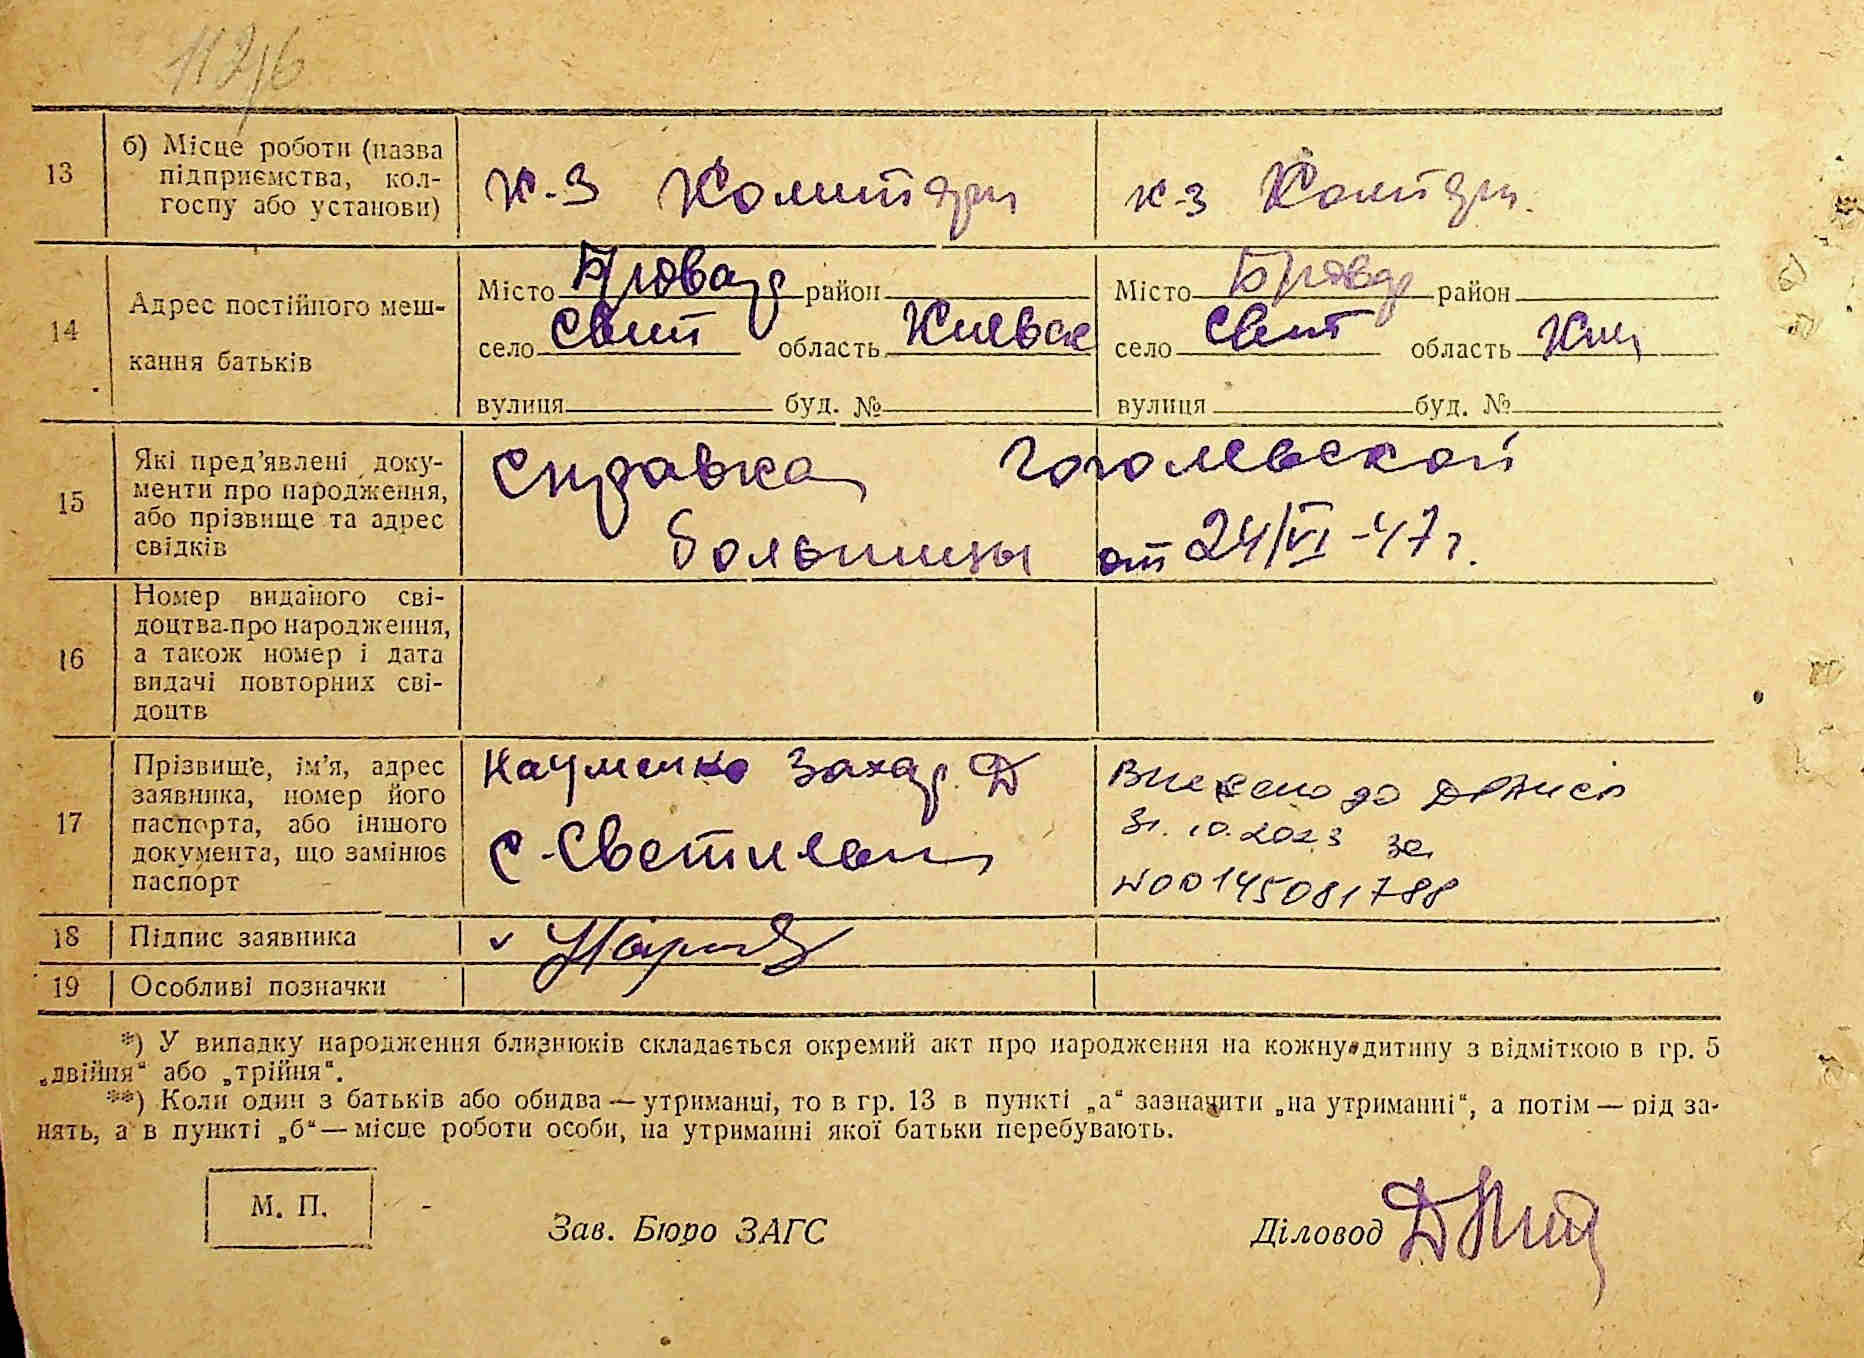 112/6
13 б) Місце роботи (назва
підприємства, кол-
госпу або установи)
к-з
к-з
14 Адрес постійного меш-
кання батьків
Місто Бровар район
село Свит область Киевск
вулиця буд. №
Місто Бровар район
село Свит область Ки
вулиця буд. №
15 Які пред'явлені доку-
менти про народження,
або прізвище та адрес
свідків
Справка Гоголевской
больницы от 24/VI-47 г.
16 Номер виданого сві-
доцтва про народження,
а також номер і дата
видачі повторних сві-
доцтв
17 Прізвище, ім'я, адрес
заявника, номер його
паспорта, або іншого
документа, що замінює
паспорт
Науменко Захар Д
с-Светильн
Внесено до ДРАЦСГ
31.10.2023 за
N00145081788
18 Підпис заявника
19 Особливі позначки
*) У випадку народження близнюків складається окремий акт про народження на кожну дитину з відміткою в гр. 5
„двійня" або „трійня".
**) Коли один з батьків або обидва — утриманці, то в гр. 13 в пункті „а" зазначити „на утриманні", а потім — рід за-
нять, а в пункті „б" — місце роботи особи, на утриманні якої батьки перебувають.
М. П.
Зав. Бюро ЗАГС
Діловод